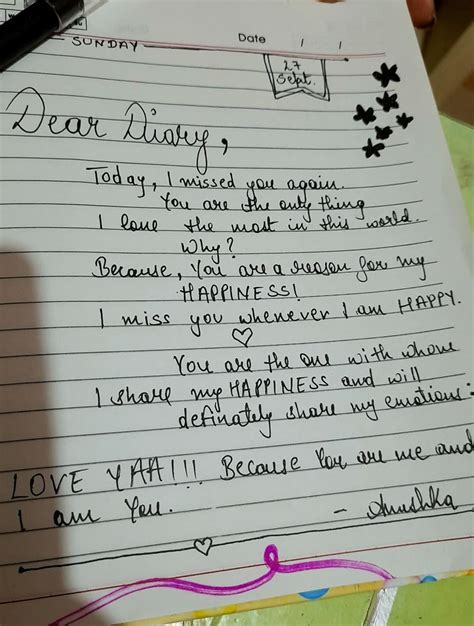 SUNDAY
Date / /
27
Sept.
Dear Diary,
Today, I missed you again.
You are the only thing
I love the most in this world.
Why?
Because, You are a reason for my
HAPPINESS!
I miss you whenever I am HAPPY.
You are the one with whom
I share my HAPPINESS and will
definately share my emotions:
LOVE YAA!!! Because You are me and
I am You.
- Anushka